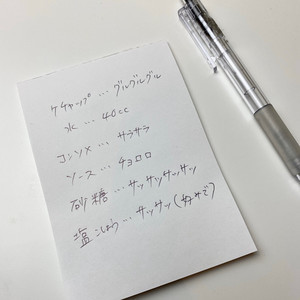 ケチャップ … グルグルグル
水 … 40cc
コンソメ … サラサラ
ソース … チョロロ
砂糖 … サッサッサッサッ
塩こしょう … サッサッ(好みで)